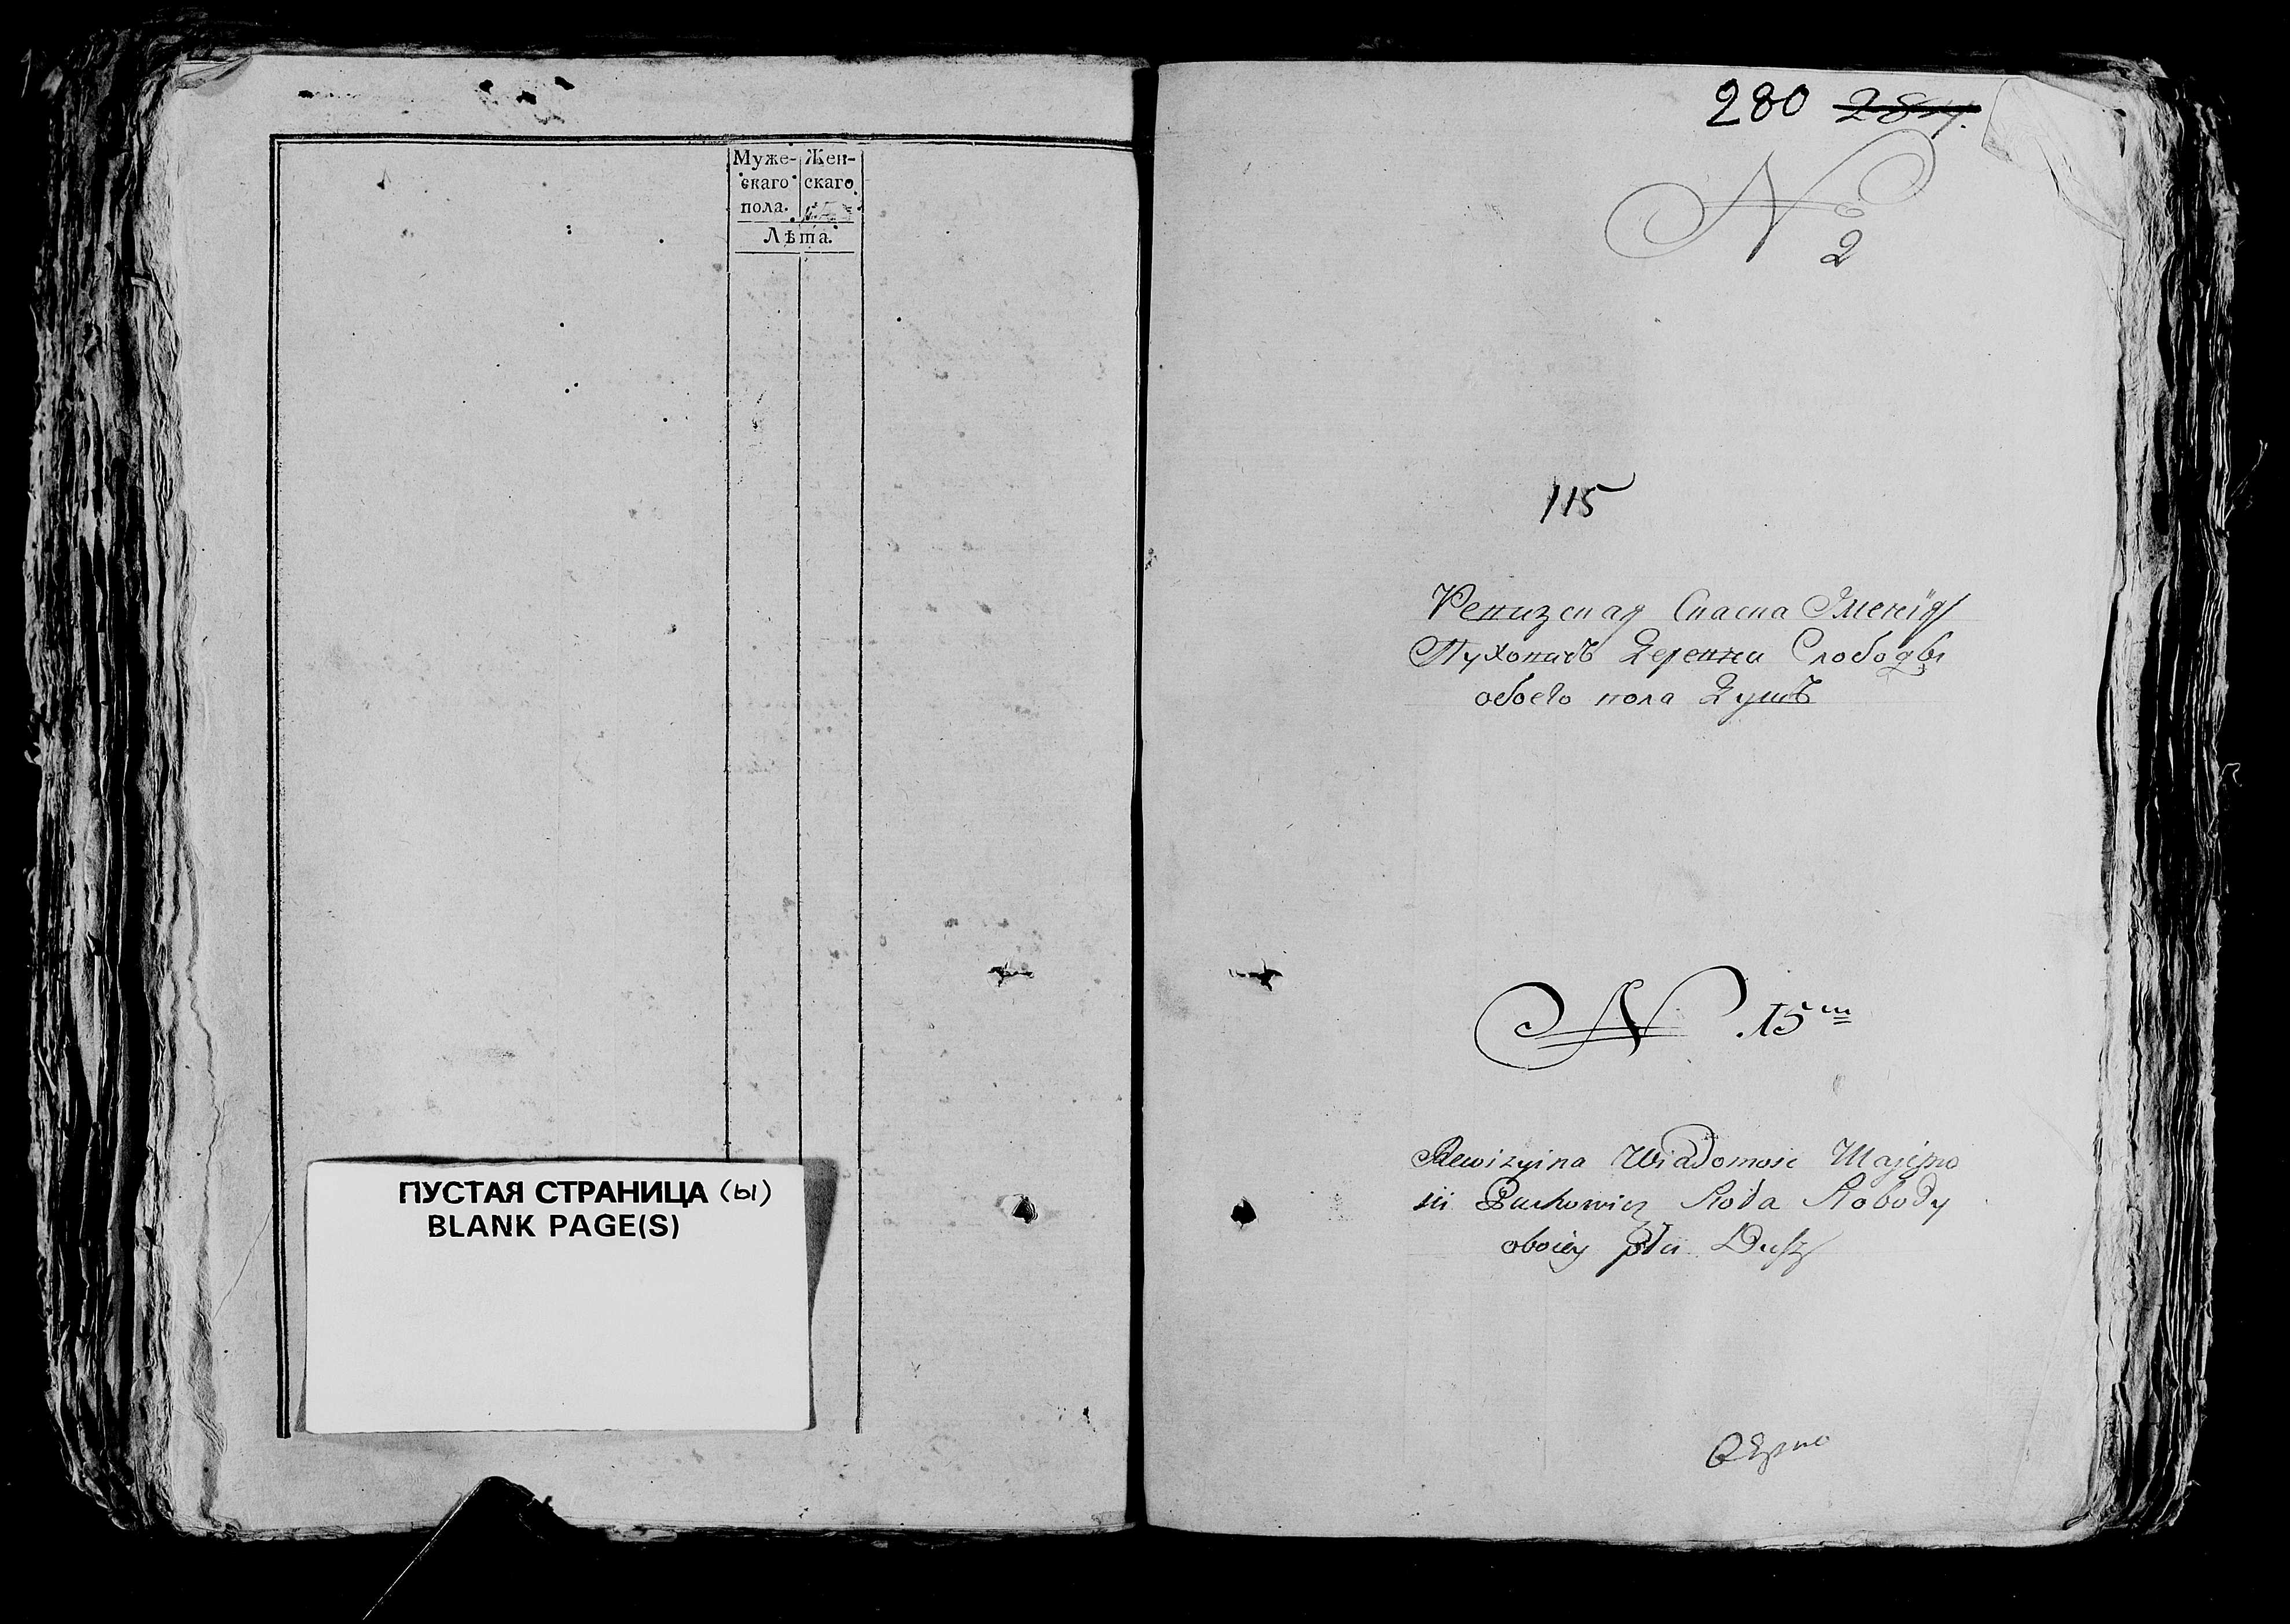 Муже- Жен-
скаго скаго
пола.
Лѣта.
ПУСТАЯ СТРАНИЦА (ы)
BLANK PAGE(S)
280 284.
N 2
115
Ревизская Сказка Именїя
Пуховичъ Деревни Слободы
обоего пола Душъ
N 15
Rewizyina Wiadomość Maję̨tno
ści Puchowicz Sioła Słobody
oboiey płci Dusz